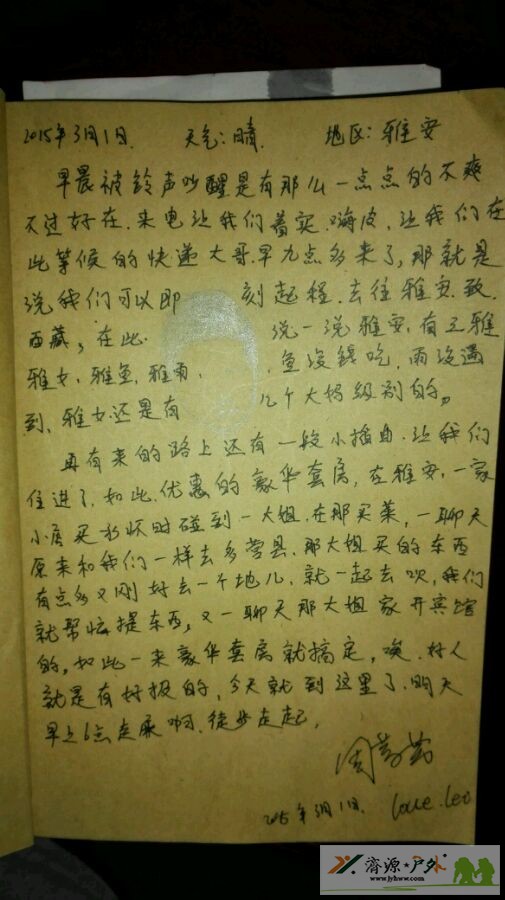 2015年3月1日. 天气:晴. 地区:雅安
早晨被铃声吵醒是有那么一点点的不爽
不过好在.来电让我们着实.嗨皮.让我们在
此等候的快递大哥.早九点多来了,那就是
说我们可以即刻起程.去往雅安.致.
西藏,在此.说一说雅安.有三雅
雅女.雅鱼.雅雨.鱼没钱吃.雨没遇
到.雅女还是有几个大妈级别的。
再有来的路上还有一段小插曲.让我们
住进了.如此.优惠的豪华套房.在雅安.一家
小店买水状时碰到一大姐.在那买菜,一聊天
原来和我们一样去多营县.那大姐买的东西
有点多又刚好去一个地儿.就一起去呗,我们
就帮忙提东西,又一聊天那大姐家开宾馆
的,如此一来豪华套房就搞定,唉.好人
就是有好报的,今天就到这里了.明天
早上6点走.啊.徒步走起,
周
2015年3月1日. Love.Leo
济源·户外
www.jyhww.com